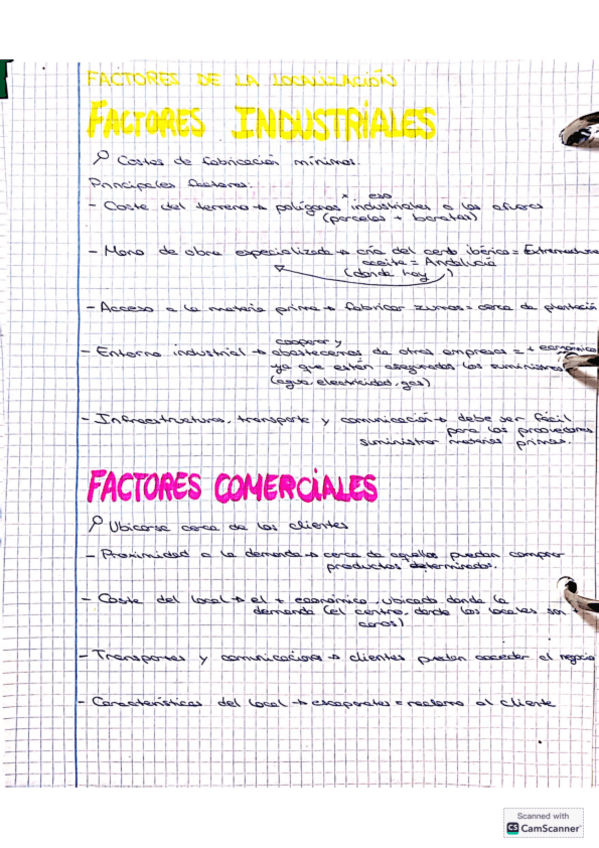 FACTORES DE LA LOCALIZACIÓN
FACTORES INDUSTRIALES
Costes de fabricación mínimos.
Principales factores:
eso
- Coste del terreno → polígonos industriales a las afueras
(parcelas + baratas)
- Mano de obra especializada → cría del cerdo ibérico = Extremadura
aceite = Andalucía
(donde hay )
- Acceso a la materia prima → fabricar zumos = cerca de plantación
cooperar y
- Entorno industrial → abastecernos de otras empresas = + económico
ya que están asegurados los suministros
(agua, electricidad, gas)
- Infraestructuras, transporte y comunicación → debe ser fácil
para los proveedores
suministrar materias primas.
FACTORES COMERCIALES
Ubicarse cerca de los clientes
- Proximidad a la demanda → cerca de aquellos puedan comprar
productos determinados.
- Coste del local → el + económico, ubicado donde la
demanda (el centro, donde los locales son +
caros)
- Transportes y comunicaciones → clientes puedan acceder al negocio
- Características del local → escaparates = reclamo al cliente
Scanned with
CS CamScanner